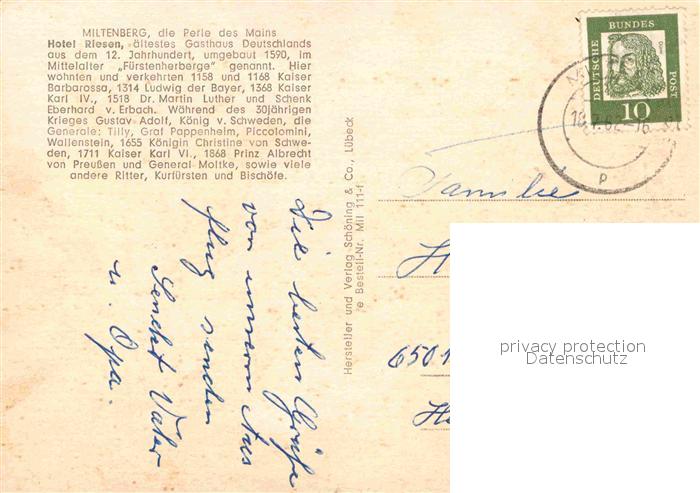 MILTENBERG, die Perle des Mains
Hotel Riesen, ältestes Gasthaus Deutschlands
aus dem 12. Jahrhundert, umgebaut 1590, im
Mittelalter „Fürstenherberge" genannt. Hier
wohnten und verkehrten 1158 und 1168 Kaiser
Barbarossa, 1314 Ludwig der Bayer, 1368 Kaiser
Karl IV., 1518 Dr. Martin Luther und Schenk
Eberhard v. Erbach. Während des 30jährigen
Krieges Gustav Adolf, König v. Schweden, die
Generale: Tilly, Graf Pappenheim, Piccolomini,
Wallenstein, 1655 Königin Christine von Schwe-
den, 1711 Kaiser Karl VI., 1868 Prinz Albrecht
von Preußen und General Moltke, sowie viele
andere Ritter, Kurfürsten und Bischöfe.
Die besten Grüße
von unserm Aus
flug senden
Vater
u. Opa.
Hersteller und Verlag Schöning & Co., Lübeck
e Bestell-Nr. Mil 111-f
DEUTSCHE BUNDES POST
10
P
Familie
H
6501
privacy protection
Datenschutz